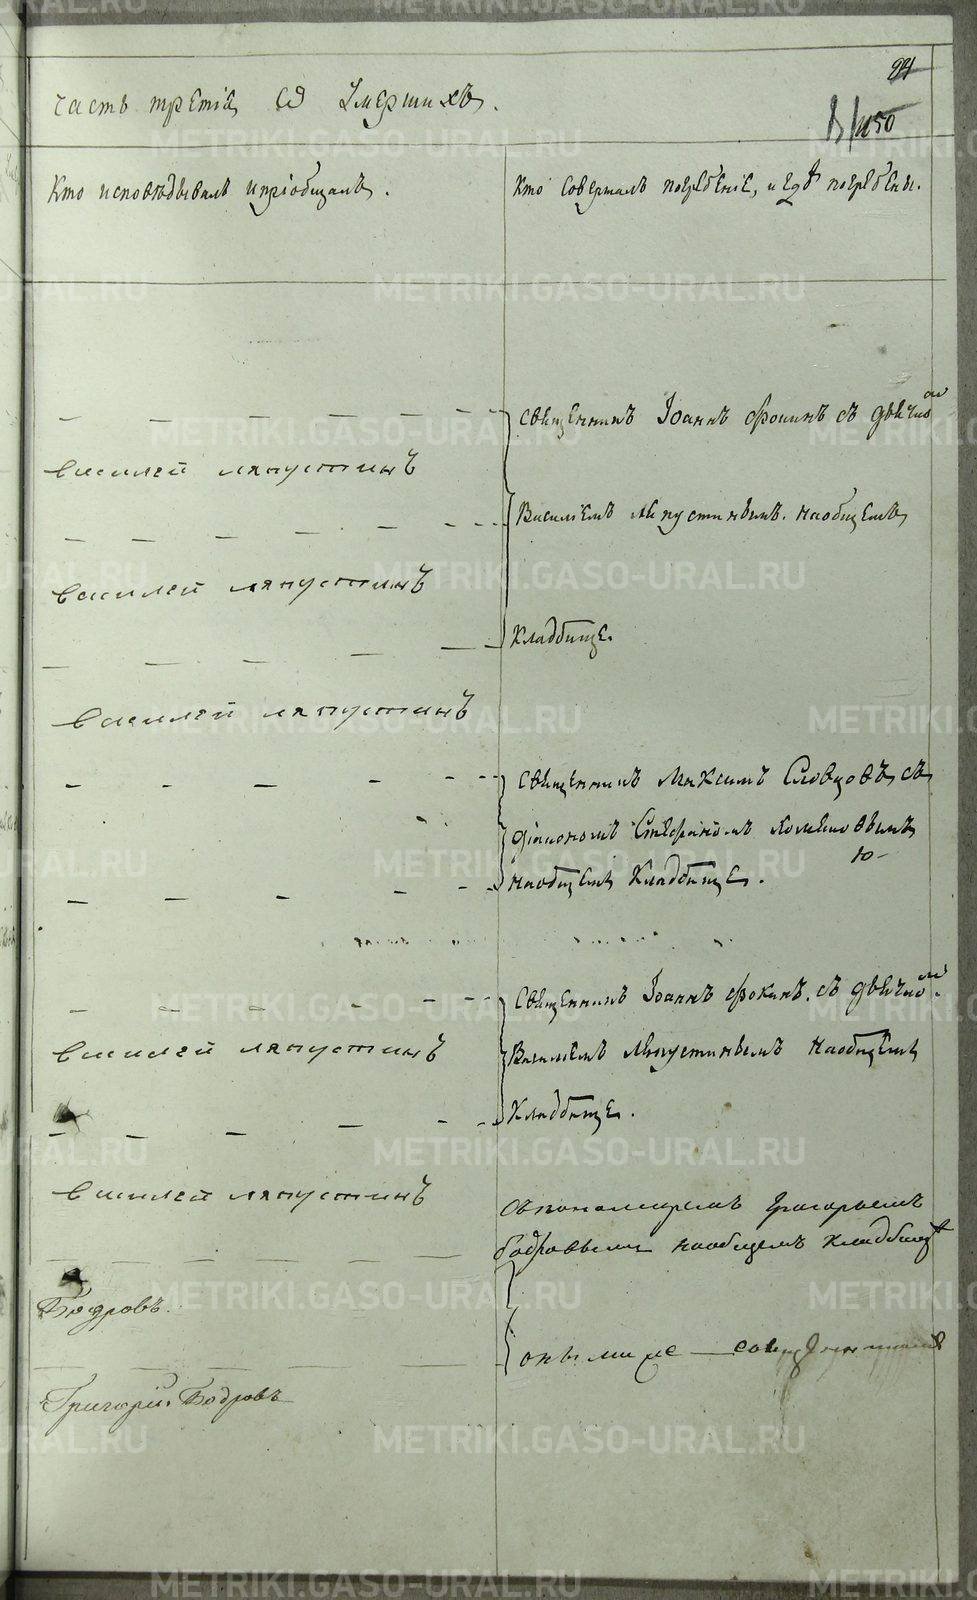 94
150
Часть третія Ѿ Умершихъ.
Кто исповѣдывалъ и пріобщалъ.
Кто совершалъ погребеніе, и гдѣ погребены.
Священникъ Іоаннъ Фокинъ съ дьячкомъ
василей ляпустинъ
Василіемъ Ляпустинымъ. на общемъ
василей ляпустинъ
Кладбище.
василей ляпустинъ
Священникъ Максимъ Словцовъ съ
діакономъ Стефаномъ
на общемъ Кладбище.
Священникъ Іоаннъ Фокинъ. съ дьячкомъ.
василей ляпустинъ
Василіемъ Ляпустинымъ на общемъ
Кладбище.
василей ляпустинъ
съ пономаремъ Григорьемъ
Бодровымъ на общемъ кладбищѣ
Бодровъ.
оными же священникомъ
Григорій Бодровъ
METRIKI.GASO-URAL.RU